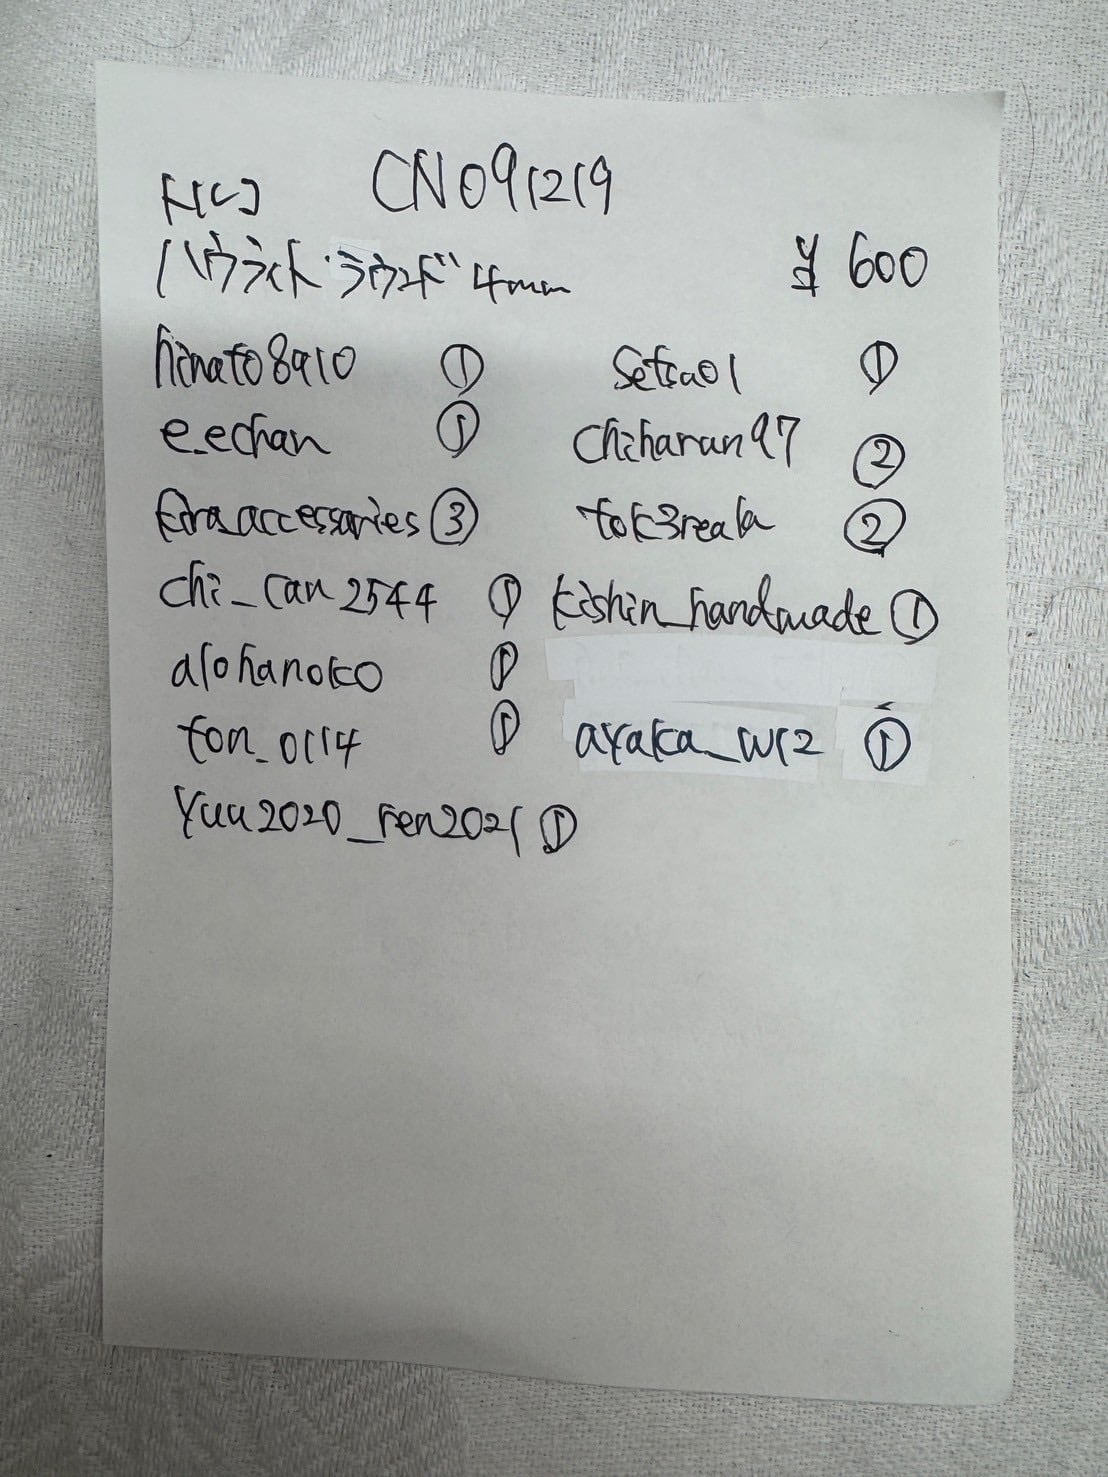 CN091219
ハウライト・ラウンド 4mm ¥600
hinato8910 ① setsa01 ①
e.echan ① chiharun97 ②
kira_accessaries ③ tok3reala ②
chi_can2544 ① kishin_handmade ①
alohanoko ①
ton_0114 ① ayaka_w12 ①
yuu2020_ren2021 ①